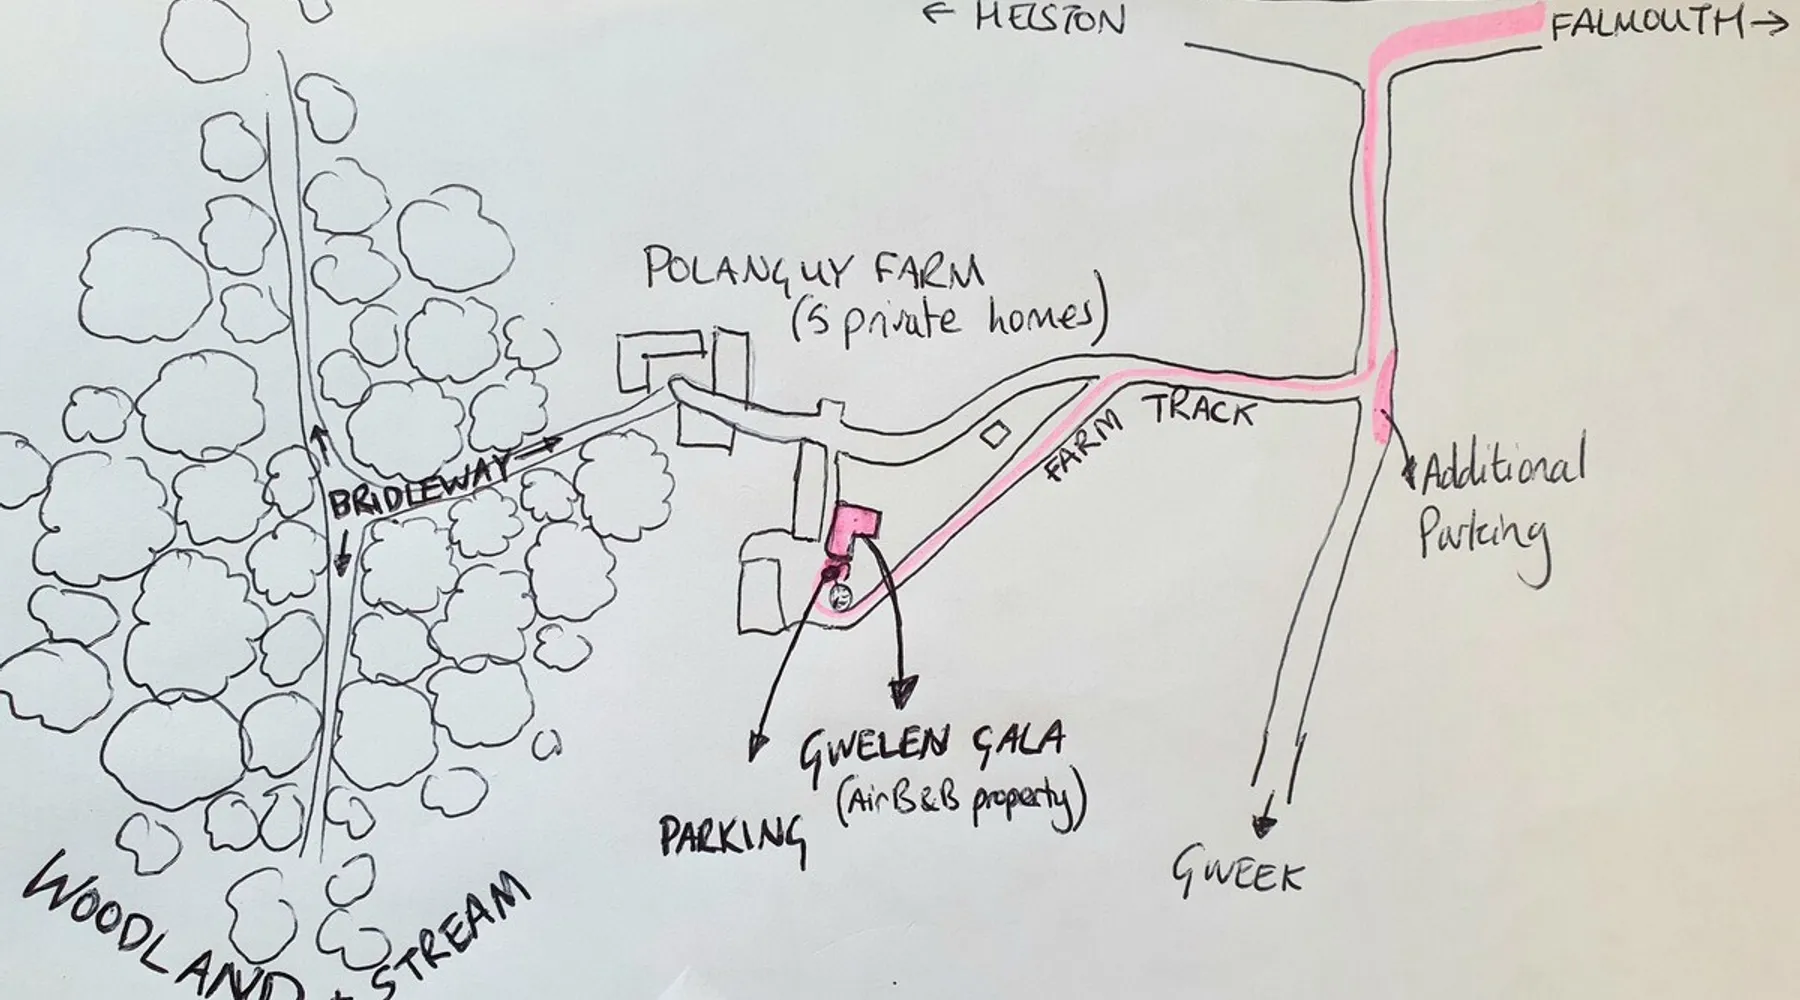 ← HELSTON
FALMOUTH →
POLANGUY FARM
(5 private homes)
FARM TRACK
BRIDLEWAY
Additional
Parking
GWELEN GALA
(AirB&B property)
PARKING
GWEEK
WOODLAND + STREAM